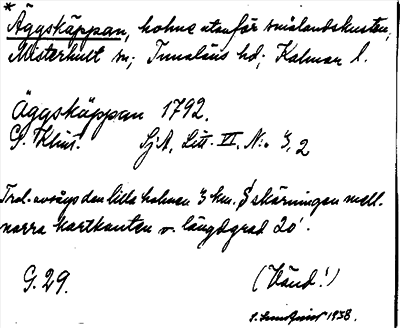 * Äggskäppan, holme utanför smålandskusten,
Misterhult sn; Tunaläns hd; Kalmar l.
Äggskäppan 1792.
G. Klint. SjA. Litt. VI. N:o 3,2
Trol. avsågs den lilla holmen 3 km. S skärningen mell.
norra kartkanten o. längdgrad 20'.
G. 29. (Vänd!)
1938.